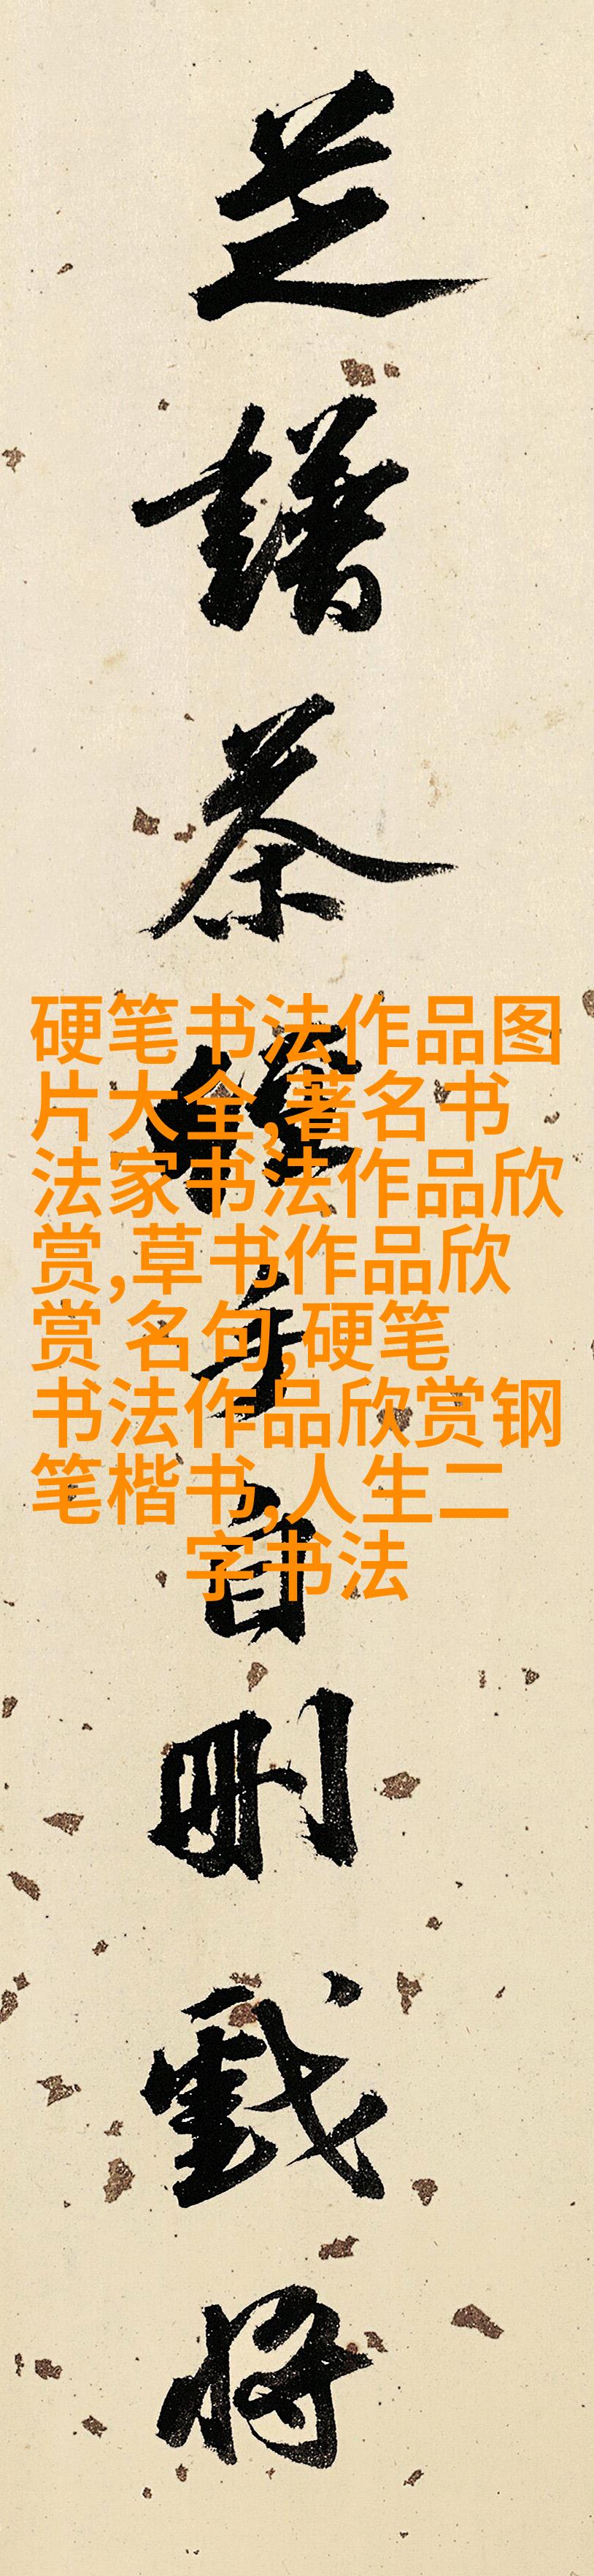 芝譜茶經手自刪戲將
硬笔书法作品图
片大全,著名书
法家书法作品欣
赏,草书作品欣
赏 名句,硬笔
书法作品欣赏钢
笔楷书,人生二
字书法